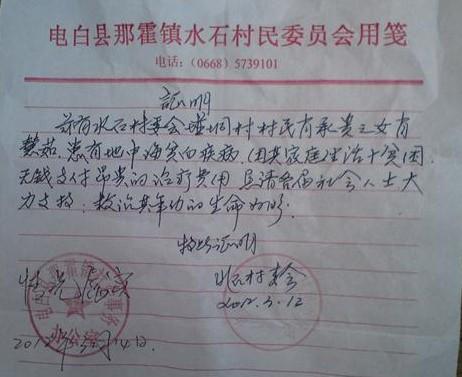 电白县那霍镇水石村民委员会用笺
电话：（0668）5739101
证明
兹有水石村委会 垌村村民肖承贵之女肖
茹，患有地中海贫血疾病，因其家庭生活十分贫困，
无钱支付昂贵的治疗费用，恳请各届社会人士大
力支持，救治其年幼的生命为盼。
特此证明
情况 水石村委会
2012.3.12
2012年3月14日.
办公室